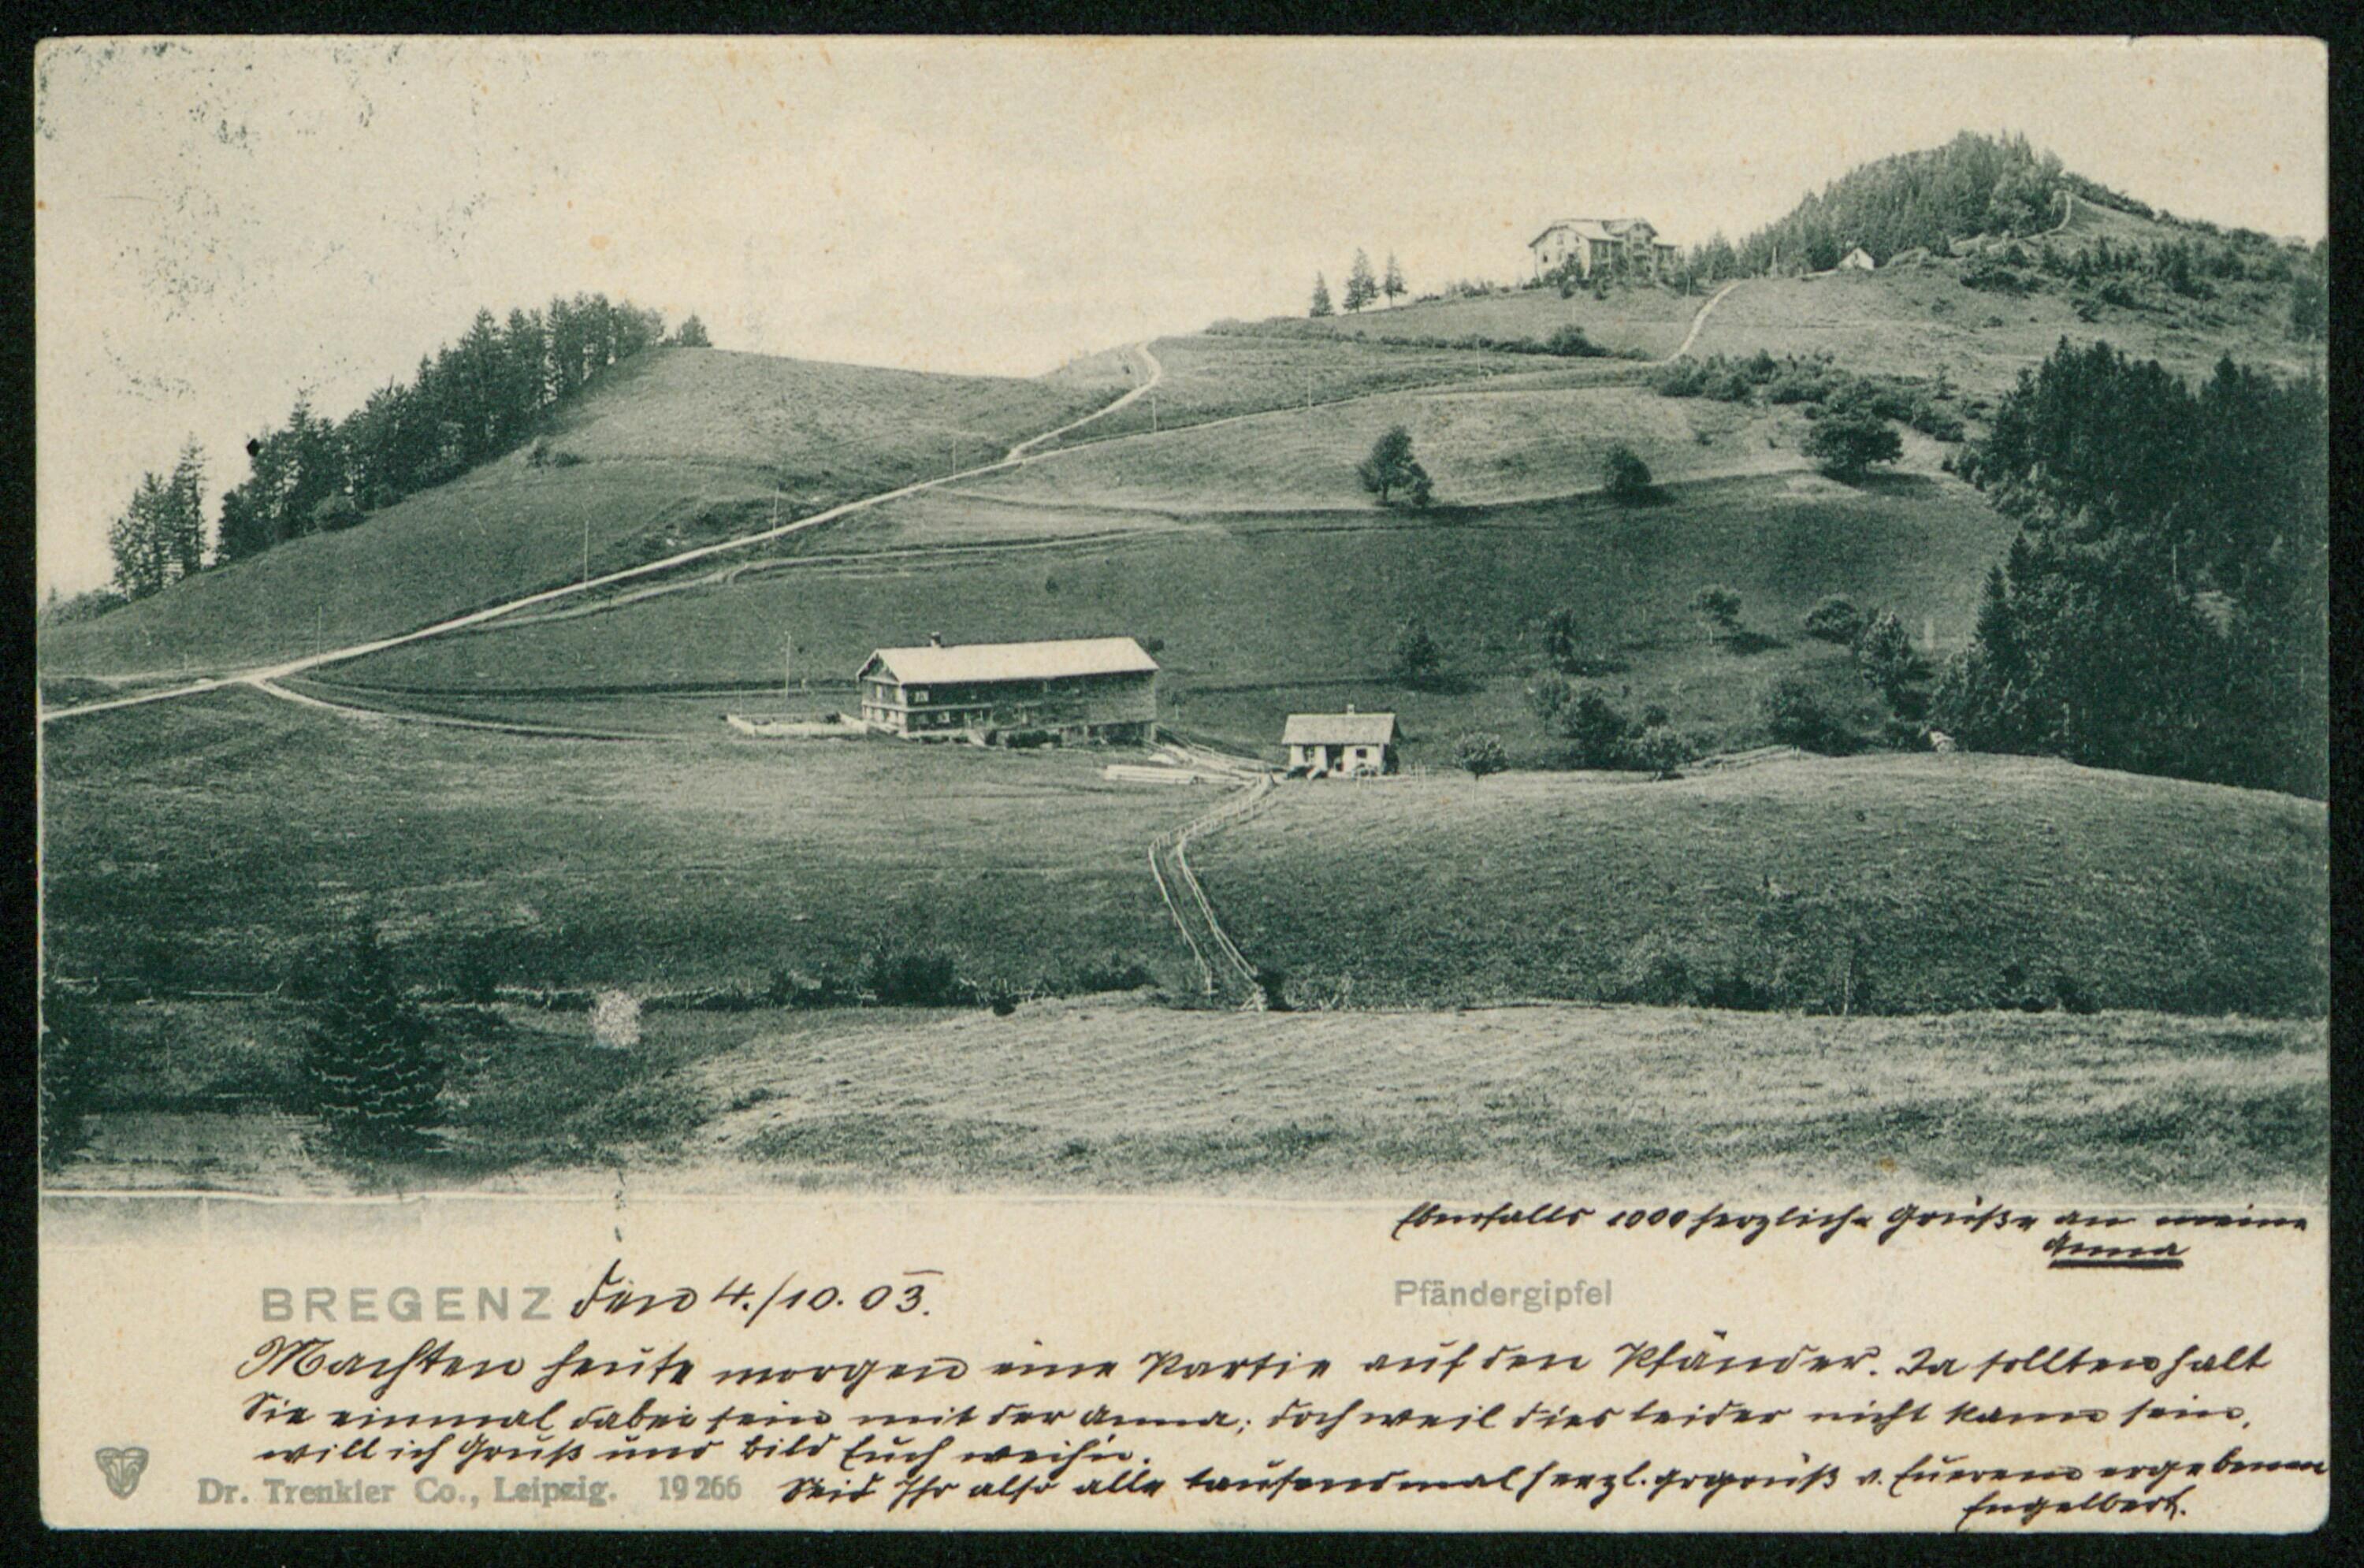 Ebenfalls 1000 herzliche Grüße an meine
Anna
BREGENZ den 4./10. 03.
Pfändergipfel
Machten heute morgen eine Partie auf den Pfänder. Da sollten halt
Sie einmal dabei sein mit der Anna; doch weil dies leider nicht kann sein,
will ich Gruß und Bild Euch weih'n.
Seid Ihr also alle tausendmal herzl. gegrüß v. Euerem ergebenen
Engelbert.
Dr. Trenkler Co., Leipzig. 19266